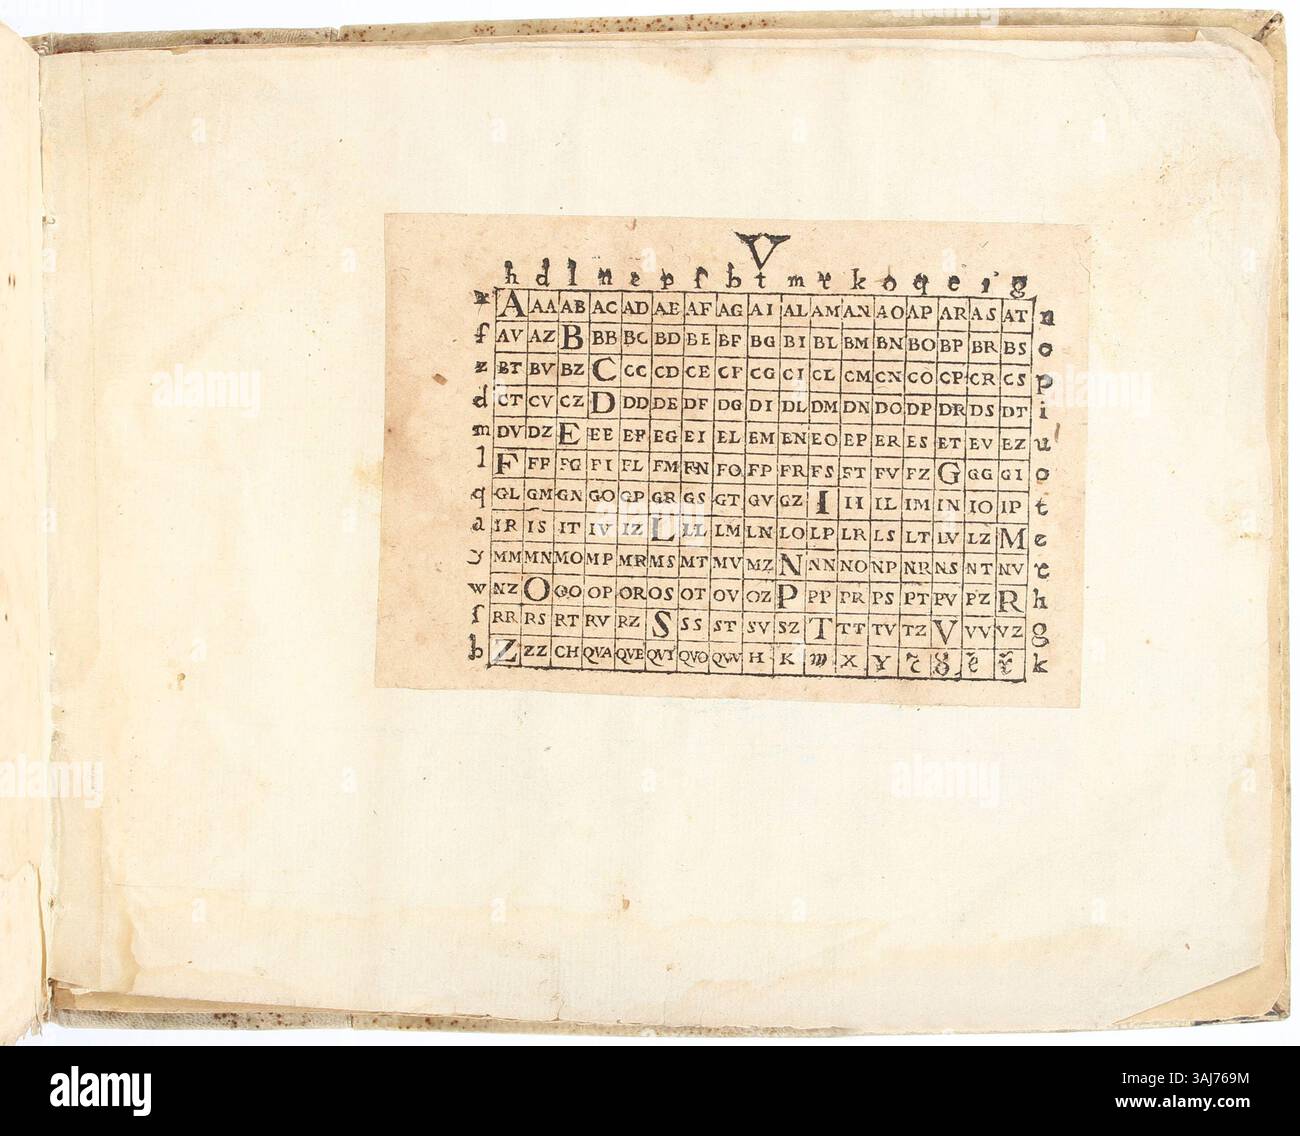 V
h d l n e p ſ b t m r k o q e i g
x A AA AB AC AD AE AF AG AI AL AM AN AO AP AR AS AT n
f AV AZ B BB BC BD BE BF BG BI BL BM BN BO BP BR BS o
z BT BV BZ C CC CD CE CF CG CI CL CM CN CO CP CR CS p
d CT CV CZ D DD DE DF DG DI DL DM DN DO DP DR DS DT i
m DV DZ E EE EF EG EI EL EM EN EO EP ER ES ET EV EZ u
l F FF FG FI FL FM FN FO FP FR FS FT FV FZ G GG GI o
q GL GM GN GO GP GR GS GT GV GZ I II IL IM IN IO IP t
a IR IS IT IV IZ L LL LM LN LO LP LR LS LT LV LZ M e
y MM MN MO MP MR MS MT MV MZ N NN NO NP NR NS NT NV e
w NZ O OO OP OR OS OT OV OZ P PP PR PS PT PV PZ R h
ſ RR RS RT RV RZ S SS ST SV SZ T TT TV TZ V VV VZ g
b Z ZZ CH QVA QVE QVI QVO QVV H K X Y k
alamy
Image ID: 3AJ769M
www.alamy.com